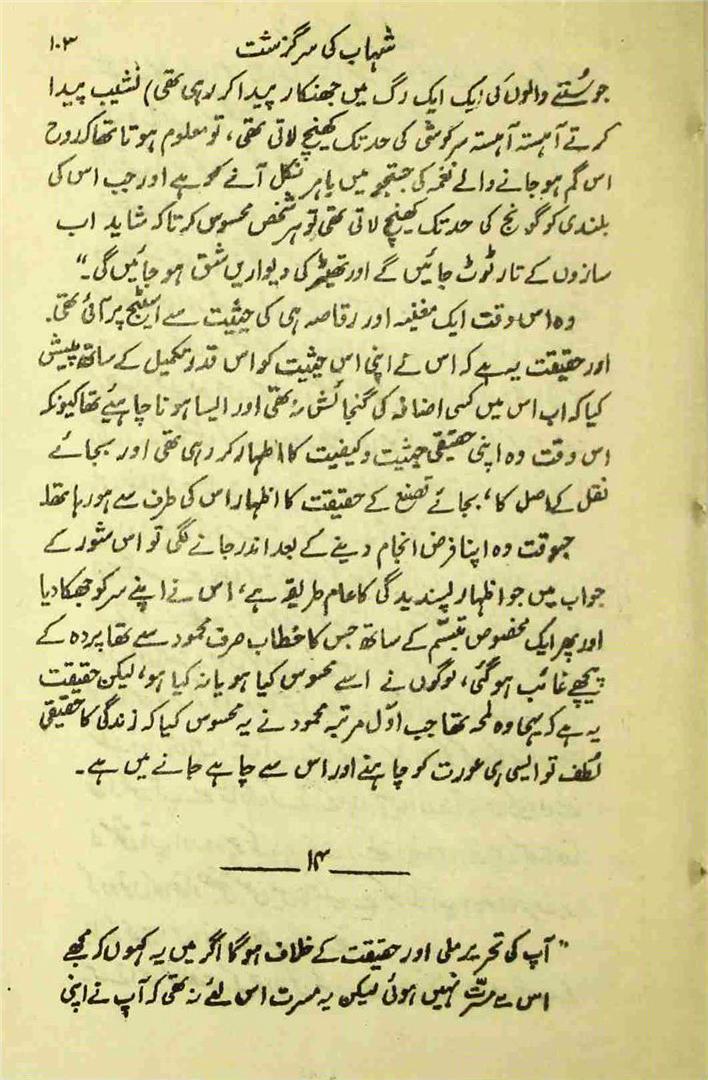 شہاب کی سرگزشت ۱۰۳
جو سُننے والوں کی ایک ایک رگ میں جھنکار پیدا کر رہی تھی) نشیب پیدا
کرتے آہستہ آہستہ سرگوشی کی حد تک کھینچ لاتی تھی، تو معلوم ہوتا تھا کہ روح
اس گم ہو جانے والے نغمہ کی جستجو میں باہر نکل آنے کو ہے اور جب اس کی
بلندی کو گونج کی حد تک کھینچ لاتی تھی تو ہر شخص محسوس کرتا کہ شاید اب
سازوں کے تار ٹوٹ جائیں گے اور تھیٹر کی دیواریں شق ہو جائیں گی۔"
وہ اس وقت ایک مغنیہ اور رقاصہ ہی کی حیثیت سے اسٹیج پر آئی تھی۔
اور حقیقت یہ ہے کہ اس نے اپنی اس حیثیت کو اس قدر تکمیل کے ساتھ پیش
کیا کہ اب اس میں کسی اضافہ کی گنجائش نہ تھی اور ایسا ہونا چاہیئے تھا کیونکہ
اس وقت وہ اپنی حقیقی حیثیت و کیفیت کا اظہار کر رہی تھی اور بجائے
نقل کے اصل کا، بجائے تصنع کے حقیقت کا اظہار اس کی طرف سے ہو رہا تھا۔
جسوقت وہ اپنا فرض انجام دینے کے بعد اندر جانے لگی تو اس شور کے
جواب میں جو اظہار پسندیدگی کا عام طریقہ ہے، اس نے اپنے سر کو جھکا دیا
اور پھر ایک مخصوص تبسّم کے ساتھ جس کا خطاب صرف محمود سے تھا پردہ کے
پیچھے غائب ہو گئی، لوگوں نے اسے محسوس کیا ہو یا نہ کیا ہو، لیکن حقیقت
یہ ہے کہ یہی وہ لمحہ تھا جب اوّل مرتبہ محمود نے یہ محسوس کیا کہ زندگی کا حقیقی
لُطف تو ایسی ہی عورت کو چاہنے اور اس سے چاہے جانے میں ہے۔
۱۴
"آپ کی تحریر ملی اور حقیقت کے خلاف ہوگا اگر میں یہ کہوں کہ مجھے
اس سے مسرّت نہیں ہوئی لیکن یہ مسرت اس لئے نہ تھی کہ آپ نے اپنی